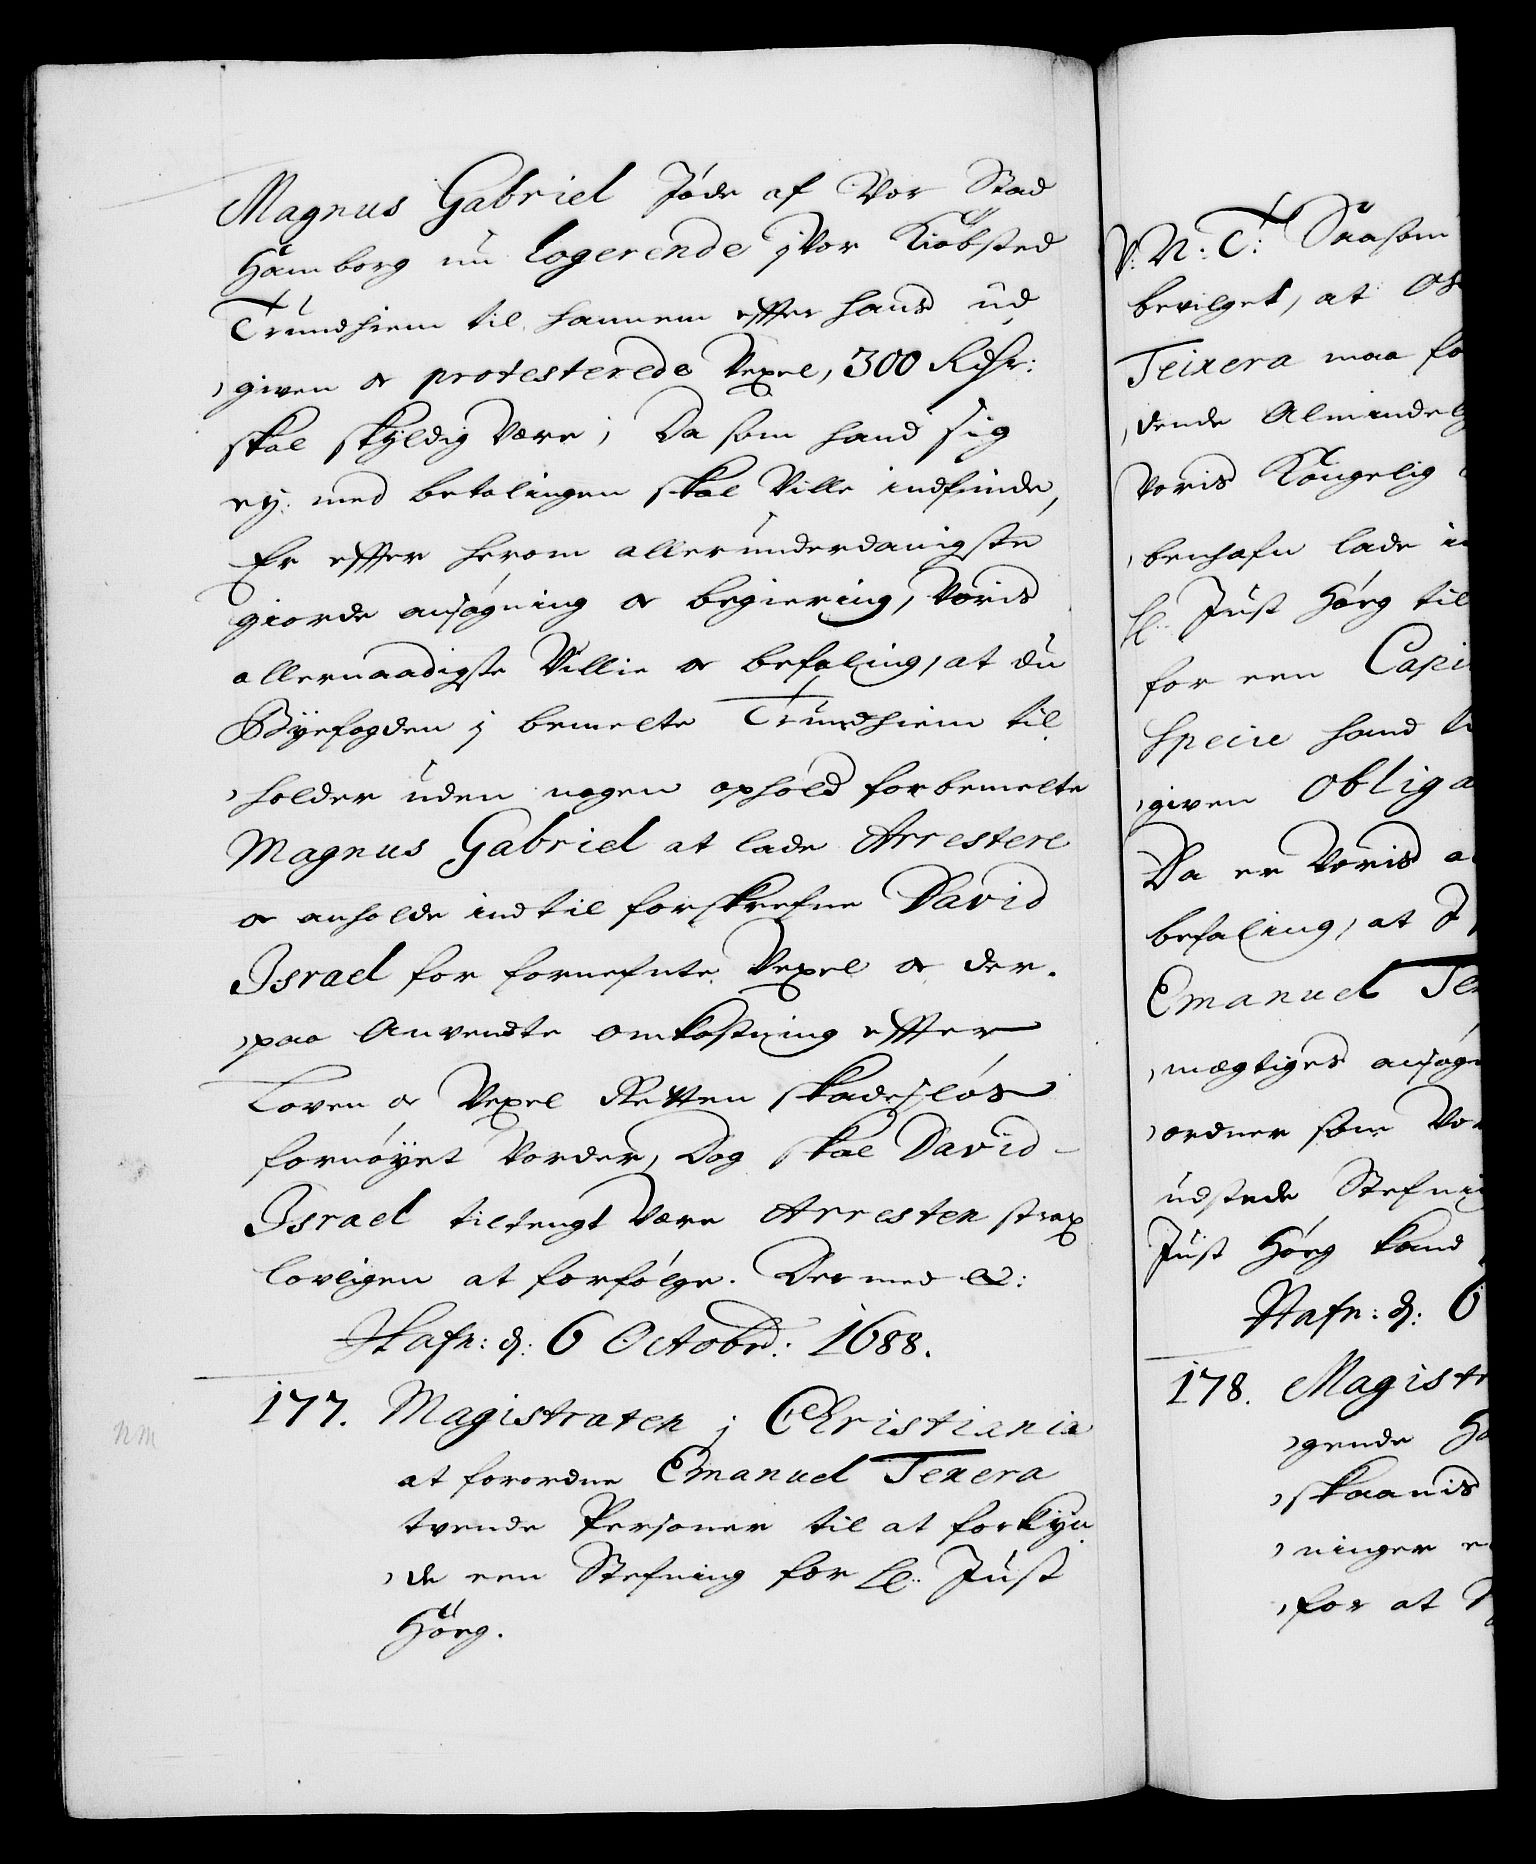 Magnus Gabriel Jøde af Vor Stad
Hamborg nu logerende j Vor Kiøbsted
Trundhiem til hannem effter hans ud
given oc protesterede Vexel, 300 Rdr:
skal skyldig Være; Da som hand sig
ej med betalingen skal Ville indfinde,
Er effter herom allerunderdanigste
giorde ansøgning oc begiering, Voris
allernaadigste Villie oc befaling, at du
Byefogden j bemelte Trundhiem til
holder uden nogen ophold forbemelte
Magnus Gabriel at lade Arrestere
oc anholde indtil forskrefne David
Israel for fornefnte Vexel oc der
paa Anvendte omkostning effter
Loven oc Vexel Retten skadesløs
fornøyet Vorder, Dog skal David
Israel tiltengt Være Arresten strax
lovligen at forfølge. Der med &:
Hafn: d: 6 Octobr: 1688.
177. Magistraten j Christiania
at forordne Emanuel Texera
tvende Personer til at forkyn
de een Stefning for Sl. Just
Høeg.
NM
V: N: T: Saasom
bevilget, at
Teixera maa
dende Almindel
Voris Kongelig
benhafn lade
Sl. Just Høeg til
for een Capi
Specie hand
given Obliga
Da er Voris
befaling, at
Emanuel Te
mægtiges ansøg
ordner som Vo
udstede Stefni
Just Høeg kand
Hafn: d: 6
178. Magistr
gende
skaanis
ninger
for at